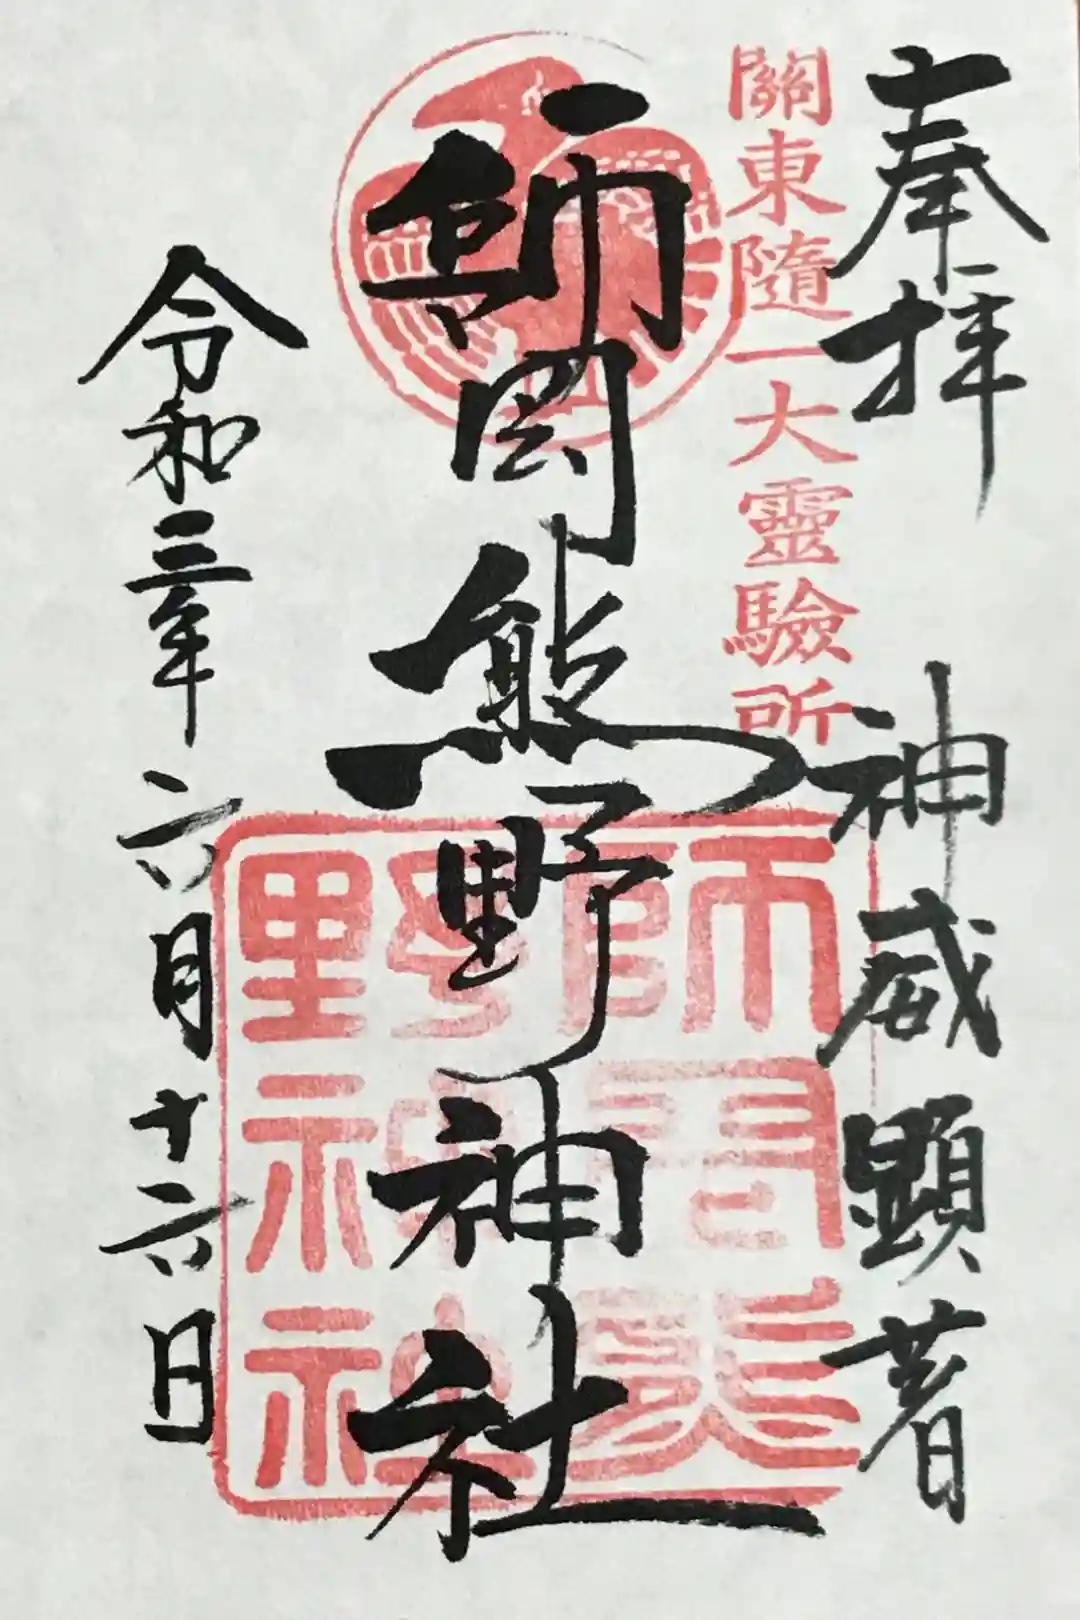 奉拝
神威顕著
關東隨一大靈驗所
師岡熊野神社
師岡熊
野神社
令和三年六月十六日